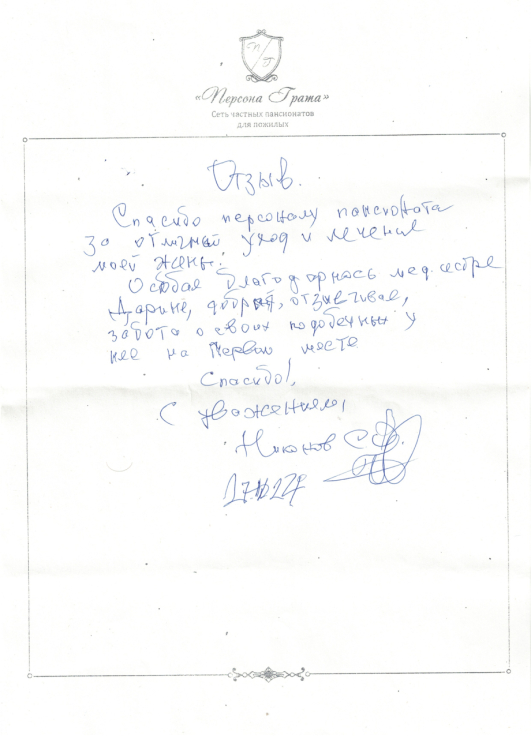 П Г
«Персона Грата»
Сеть частных пансионатов
для пожилых
Отзыв.
Спасибо персоналу пансионата
за отличный уход и лечение
моей жены.
Особая благодарнось мед. сестре
Дарине, добрый, отзывчивая,
забота о своих подобечных у
нее на первом месте
Спасибо!
С уважением,
Никонов С.